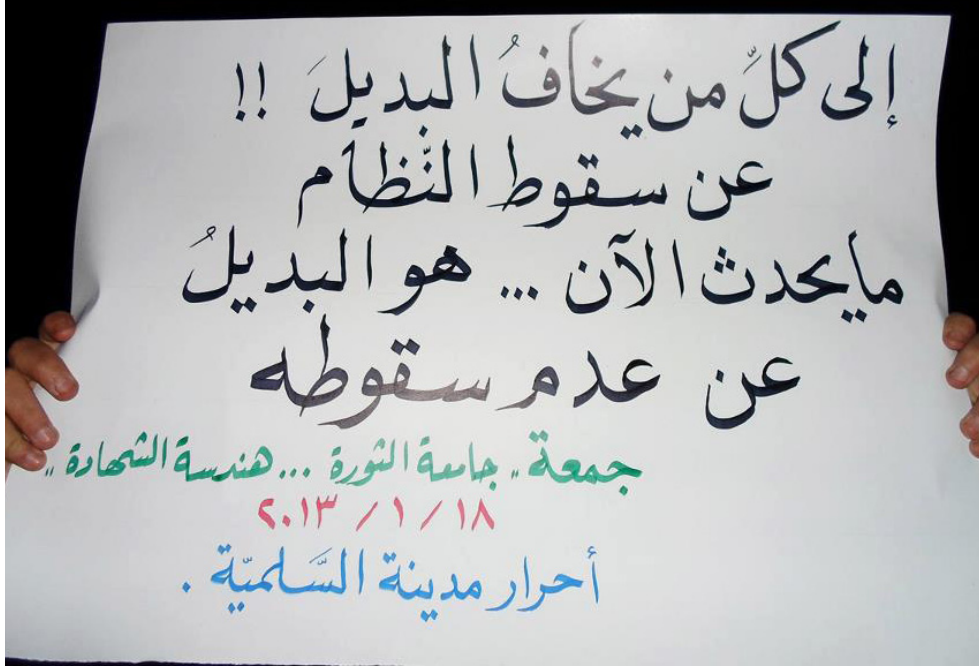 إلى كلِّ من يخافُ البديلَ !!
عن سقوط النّظام
مايحدث الآن ... هو البديلُ
عن عدم سقوطه
جمعة " جامعة الثورة ... هندسة الشهادة "
١٨ / ١ / ٢٠١٣
أحرار مدينة السَّلميّة .